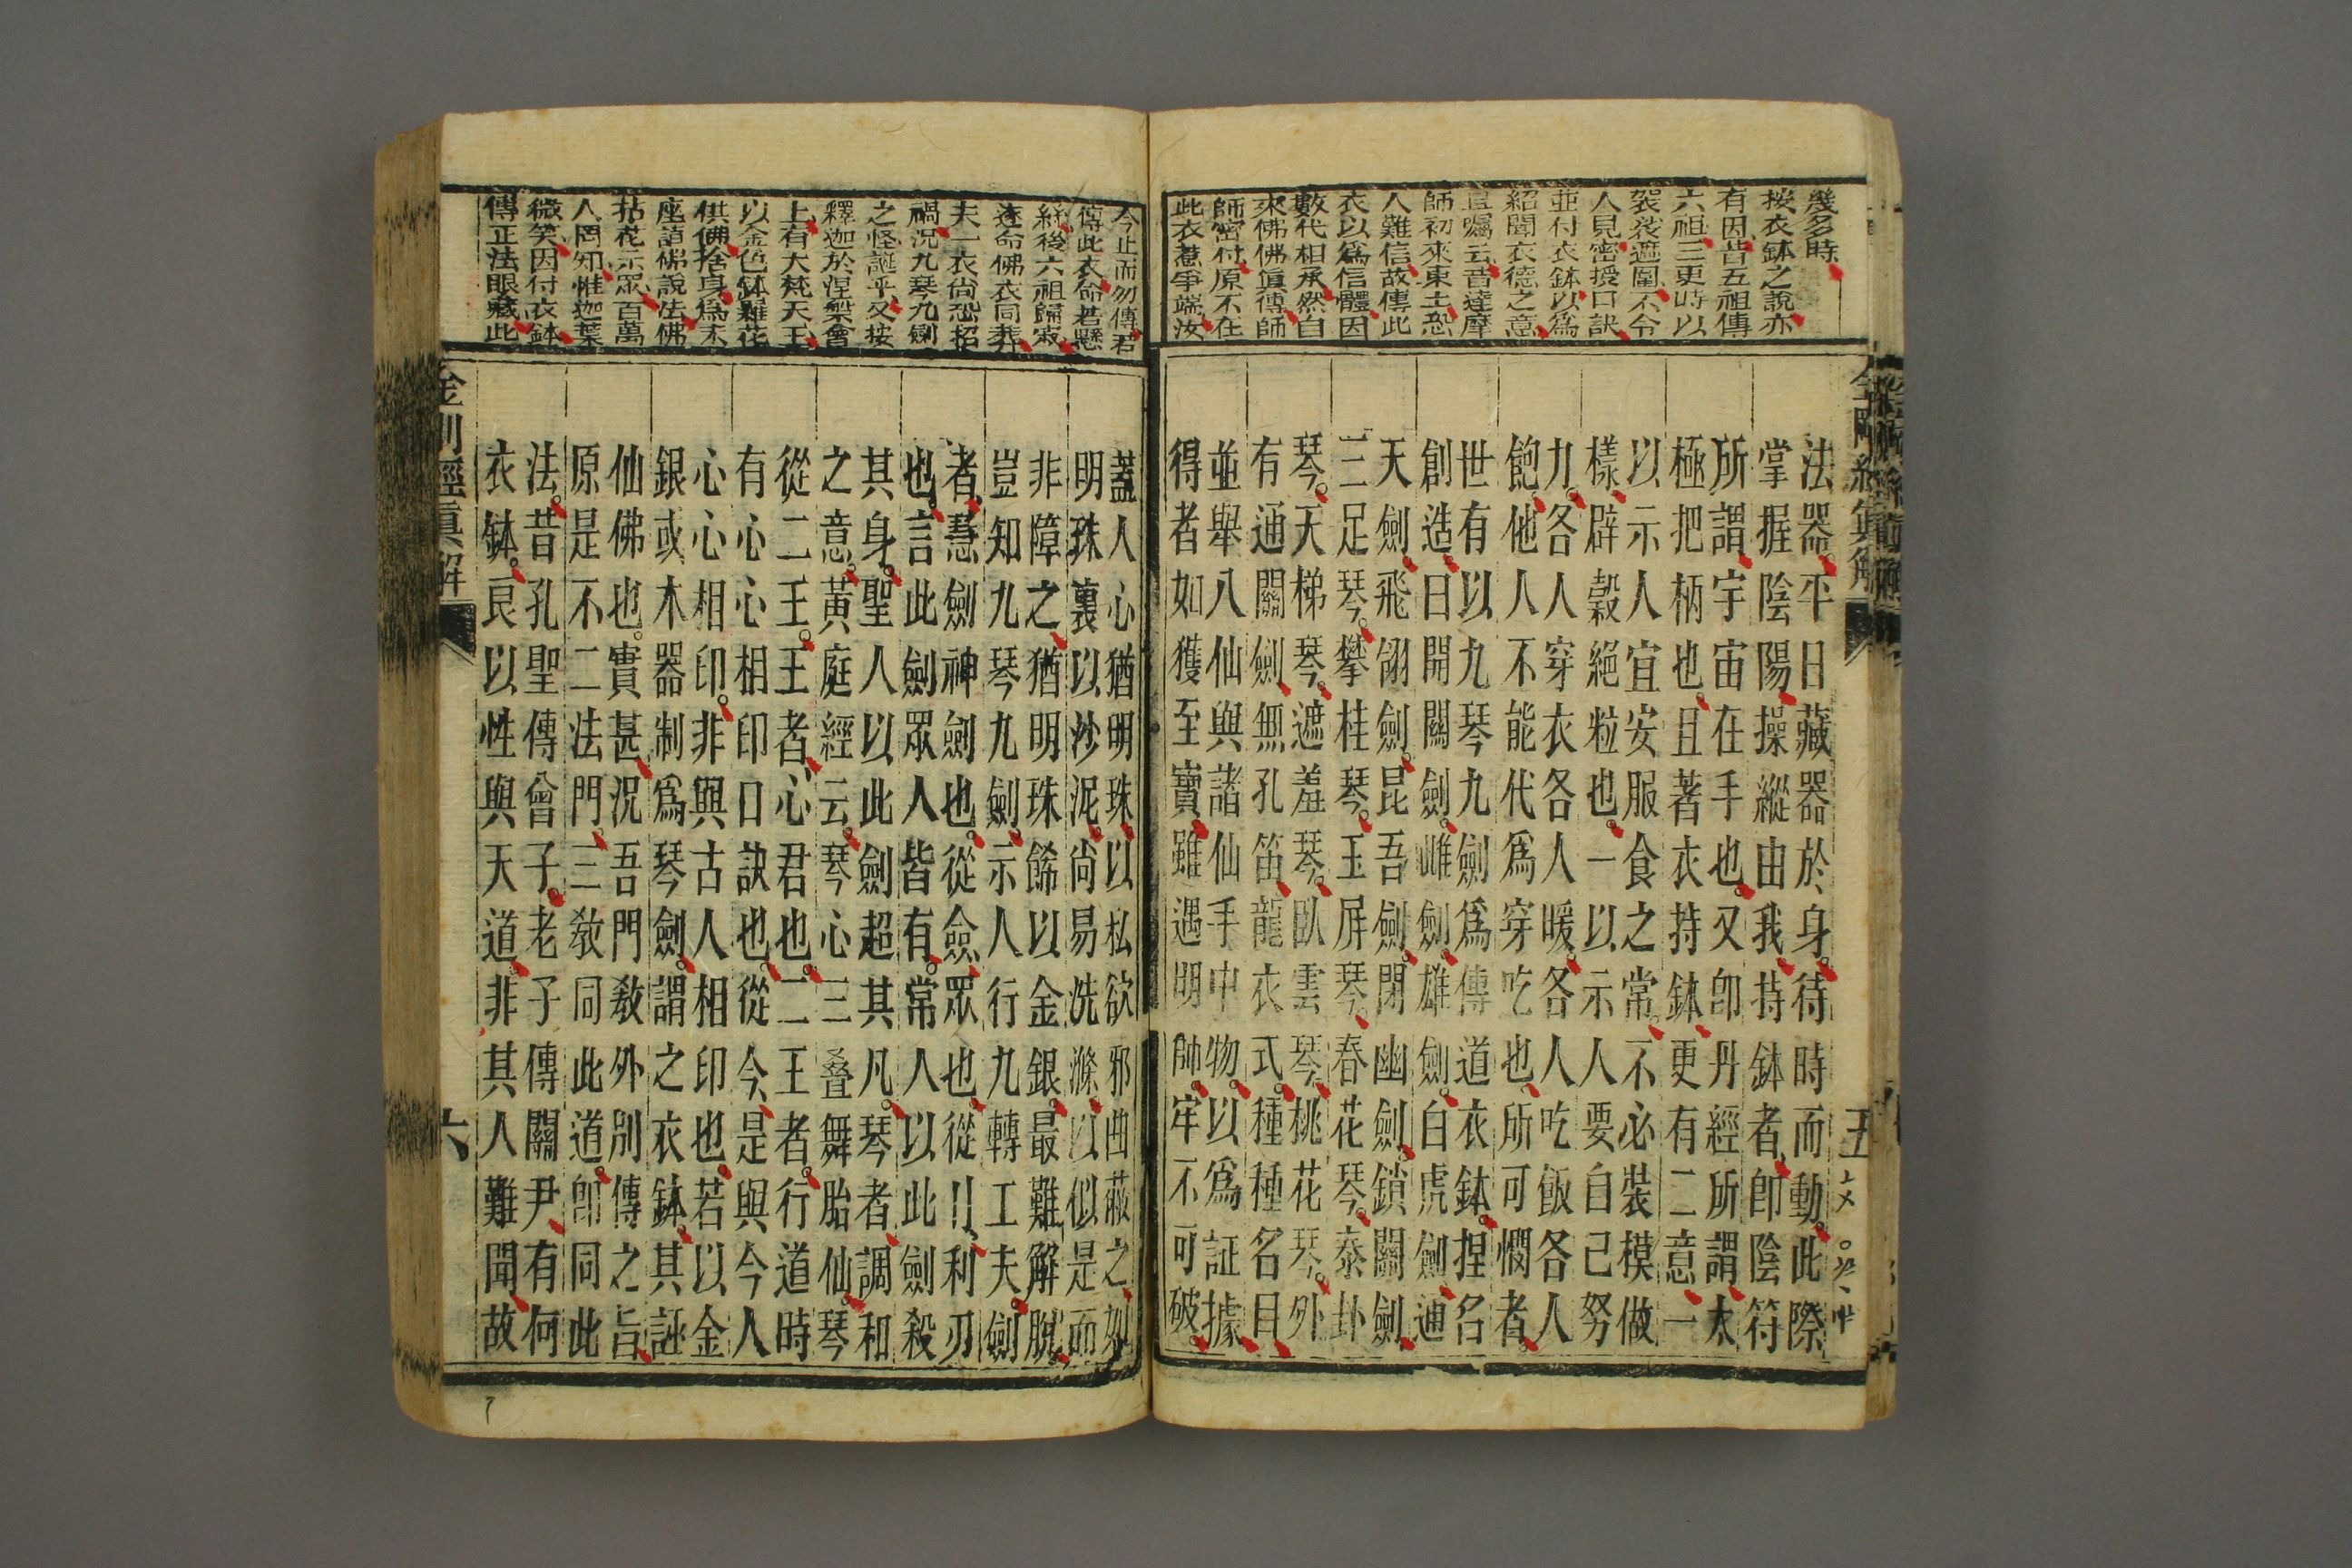 幾多時
按衣鉢之說亦
有因昔五祖傳
六祖三更時以
袈裟遮圍不令
人見密授口訣
並付衣鉢以爲
紹聞衣德之意
且囑云昔達摩
師初來東土恐
人難信故傳此
衣以爲信體因
數代相承然自
來佛佛眞傳師
師密付原不在
此衣惹爭端汝
法器。平日藏器於身。待時而動。此際
掌握陰陽操縱由我持鉢者卽陰符
所謂宇宙在手也。又卽丹經所謂太
極把柄也。且著衣持鉢更有二意一
以示人宜安服食之常不必裝模做
樣辟穀絕粒也。一以示人要自己努
力。各人穿衣各人暖。各人吃飯各人
飽。他人不能代爲穿吃也。所可憫者。
世有以九琴九劍爲傳道衣鉢。捏名
創造。曰開關劍。雌劍。雄劍。白虎劍通
天劍。飛翎劍。昆吾劍。閉幽劍。鎖關劍
三足琴。攀桂琴。玉屏琴春花琴。泰卦
琴。天梯琴。遮羞琴。臥雲琴。桃花琴。外
有通關劍無孔笛龍衣式。種種名目
並舉八仙與諸仙手中物。以爲証據
得者如獲至寶雖遇明師。牢不可破。
金剛經眞解
五
今止而勿傳君
傳此衣命若懸
絲後六祖歸寂
遂命佛衣同葬
夫一衣尚恐招
禍況九琴九劍
之怪誕乎又按
釋迦於涅槃會
上有大梵天王
以金色鉢羅花
供佛捨身爲床
座請佛說法佛
拈花示眾百萬
人罔知惟迦葉
微笑因付衣鉢
傳正法眼藏此
蓋人心猶明珠以私欲邪曲蔽之如
明珠裏以沙泥。尚易洗滌。以似是而
非障之猶明珠餙以金銀。最難解脫
豈知九琴九劍。示人行九轉工夫。劍
者。慧劍神劍也。從僉眾也從刂利刃
也。言此劍眾人皆有。常人以此劍殺
其身。聖人以此劍超其凡。琴者調和
之意。黃庭經云。琴心三叠舞胎仙。琴
從二王。王者心君也。二王者。行道時
有心心相印口訣也。從今是與今人
心心相印。非與古人相印也若以金
銀或木器制爲琴劍。謂之衣鉢。其誣
仙佛也。實甚況吾門敎外別傳之旨
原是不二法門。三敎同此道。卽同此
法。昔孔聖傳曾子。老子傳關尹有何
衣鉢。良以性與天道非其人難聞故
金剛經眞解
六